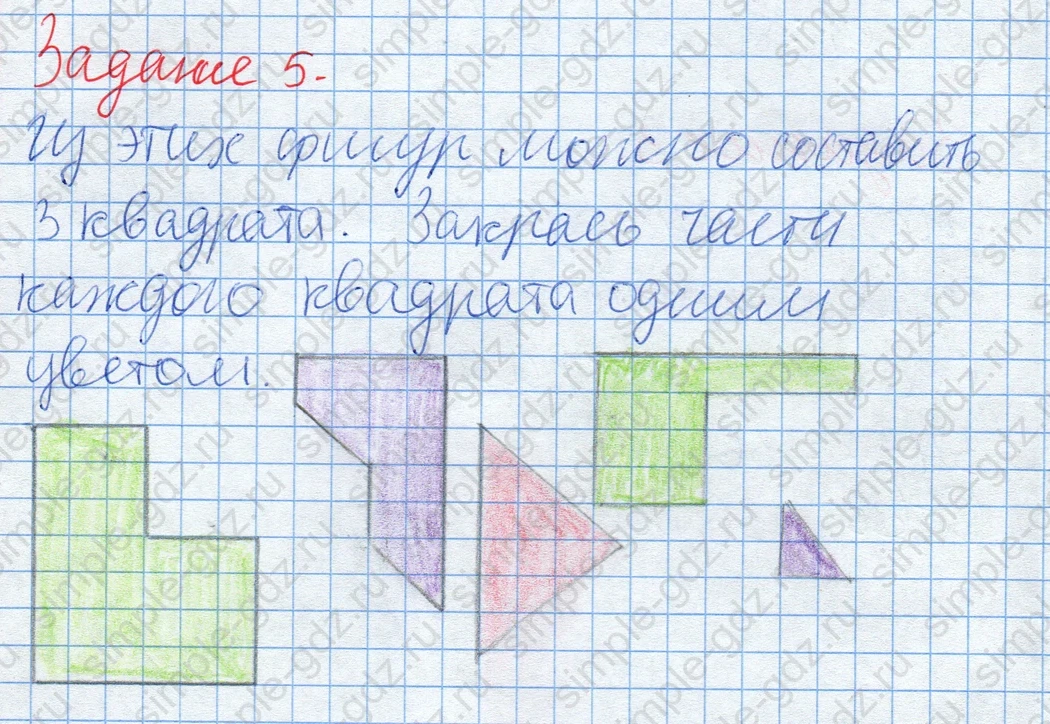 Задание 5.
Из этих фигур можно составить
3 квадрата. Закрась части
каждого квадрата одним
цветом.
simple-gdz.ru